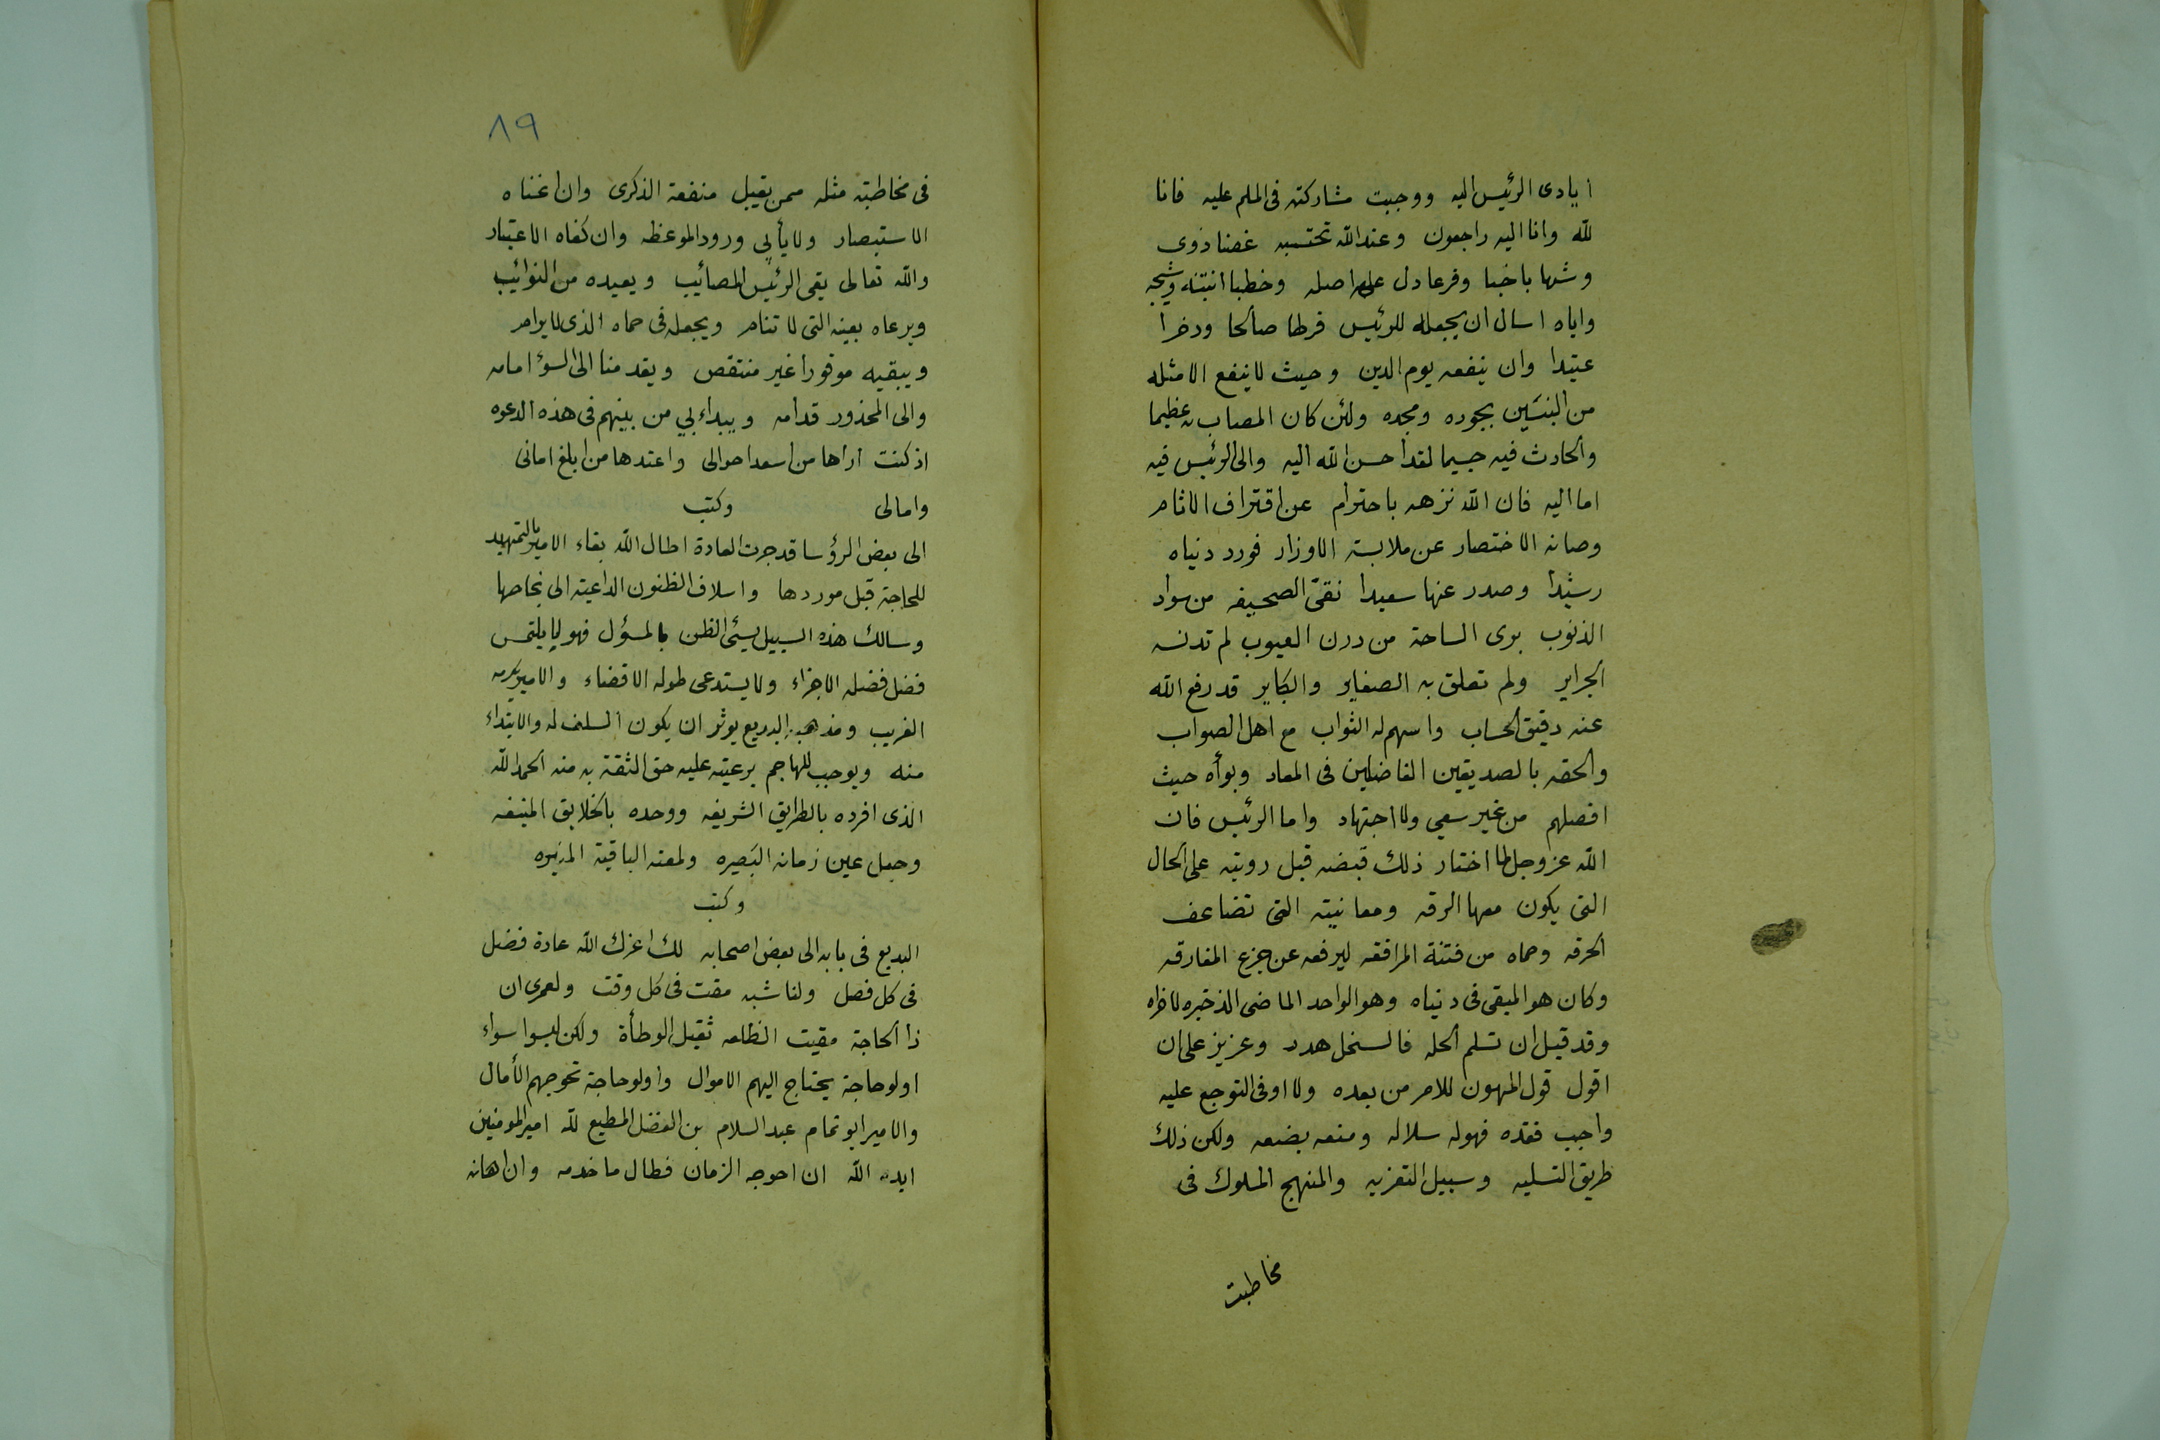 ايادى الرئيس اليه ووجبت مشاركته فى الملم عليه فانا
لله وانا اليه راجعون وعند الله تحتسبه غصنا ذوى
وشهابا خبا وفرعا دل على اصله وخطبا انبته وشيجه
واياه اسال ان يجعله للرئيس فرطا صالحا وذخرا
عتيدا وان ينفعه يوم الدين وحيث لا ينفع الا مثله
من البنين بجوده ومجده ولئن كان المصاب به عظيما
والحادث فيه جسيما لقد احسن الله اليه والى الرئيس فيه
اما اليه فان الله نزهه باحترام عن اقتراف الاثام
وصانه الاختصار عن ملابسة الاوزار فورد دنياه
رشيدا وصدر عنها سعيدا نقى الصحيفه من سواد
الذنوب برى الساحة من درن العيوب لم تدنسه
الجراير ولم تعلق به الصغاير والكباير قد رفع الله
عنه دقيق الحساب واسهم له الثواب مع اهل الصواب
والحقه بالصديقين الفاضلين فى المعاد وبوأه حيث
افضلهم من غير سعي ولا اجتهاد واما الرئيس فان
الله عز وجل لما اختار ذلك قبضه قبل رويته على الحال
التى يكون معها الرقه ومعاينته التى تضاعف
الحرقه وحماه من فتنة المرافقه ليرفعه عن جزع المفارقه
وكان هو المبقى فى دنياه وهو الواحد الماضى الذخيره لاخراه
وقد قيل ان تسلم الحله فالسخل هدر وعزيز على ان
اقول قول المهون للامر من بعده ولا اوفى التوجع عليه
واجب فقده فهو له سلاله ومنه بضعه ولكن ذلك
طريق التسليه وسبيل التعزيه والمنهج المسلوك فى
مخاطبة
٨٩
فى مخاطبته مثله ممن يقبل منفعة الذكرى وان اغناه
الاستبصار ولا يأبى ورود الموعظه وان كفاه الاعتبار
والله تعالى يقى الرئيس المصائب ويعيده من النوائب
ويرعاه بعينه التى لا تنام ويجعله فى حماه الذى لا يرام
ويبقيه موفورا غير منتقص ويقدمنا الى السؤ امامه
والى المحذور قدامه ويبداء بي من بينهم فى هذه الدعوه
اذ كنت اراها من اسعد احوالى واعتدها من ابلغ امانى
وامالى وكتب
الى بعض الرؤسا قد جرت العادة اطال الله بقاء الامير بالتمهيد
للحاجة قبل موردها واسلاف الظنون الداعية الى نجاحها
وسالك هذه السبيل يسئ الظن بالمسؤل فهو لا يلتمس
فضل فضله الا جزاء ولا يستدعى طوله الا قضاء والامير بكرمه
الغريب ومذهبه البديع يوثر ان يكون السلف له والابتداء
منه ويوجب للهاجم برغبته عليه حق الثقة به منه الحمد لله
الذى افرده بالطرايق الشريفه ووحده بالخلايق المنيفه
وجعل عين زمانه البصيره ولمعته الباقية المنيره
وكتب
البديع فى بابه الى بعض اصحابه لك اعزك الله عادة فضل
فى كل فصل ولنا شبه مقت فى كل وقت ولعمرى ان
ذا الحاجة مقيت الطلعه ثقيل الوطأة ولكن ليسوا سواء
اولو حاجة يحتاج اليهم الاموال واولو حاجة تحوجهم الأمال
والامير ابو تمام عبد السلام بن الفضل المطيع لله امير المومنين
ايده الله ان احوجه الزمان فطال ما خدمه وان اهانه